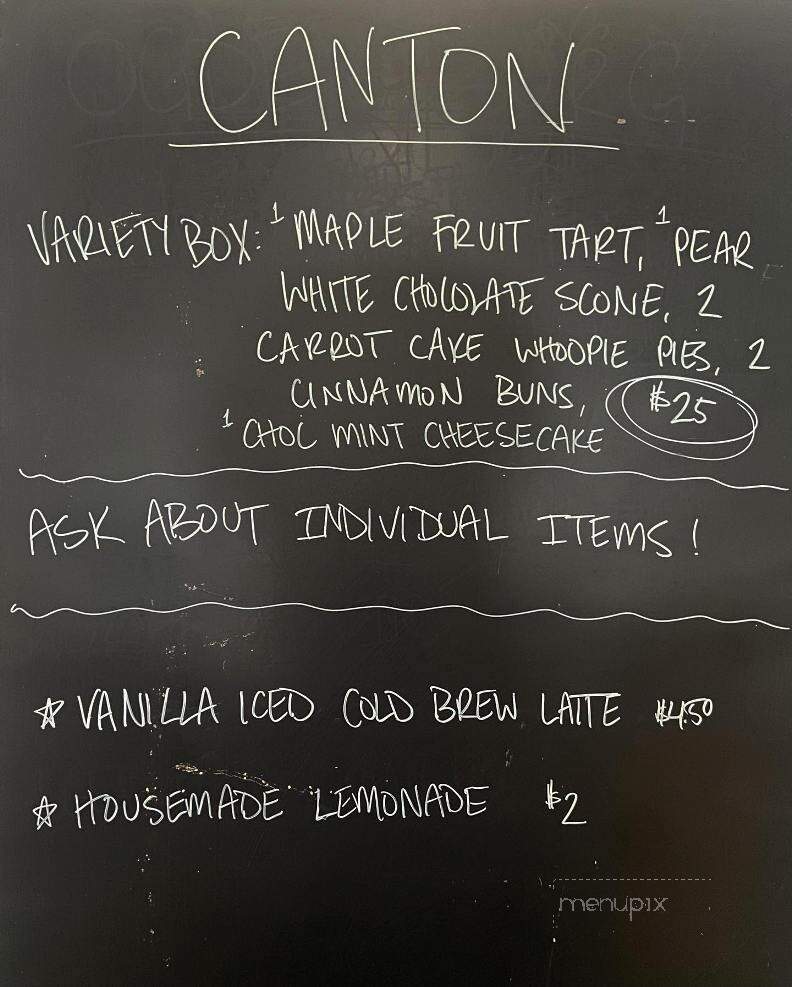 CANTON
VARIETY BOX: 1 MAPLE FRUIT TART, 1 PEAR
WHITE CHOCOLATE SCONE, 2
CARROT CAKE WHOOPIE PIES, 2
CINNAMON BUNS, $25
1 CHOC MINT CHEESECAKE
ASK ABOUT INDIVIDUAL ITEMS!
☆ VANILLA ICED COLD BREW LATTE $4.50
☆ HOUSEMADE LEMONADE $2
menupix